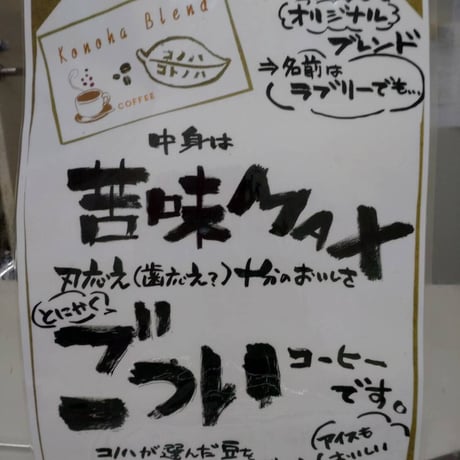 Konoha Blend
コノハ
コトノハ
COFFEE
オリジナル
ブレンド
⇒名前は
ラブリーでも…
中身は
苦味MAX
刃応え(歯応え?)十分のおいしさ
とにかく
ごつい
コーヒー
です。
コノハが選んだ豆を
アイスも
おいしい